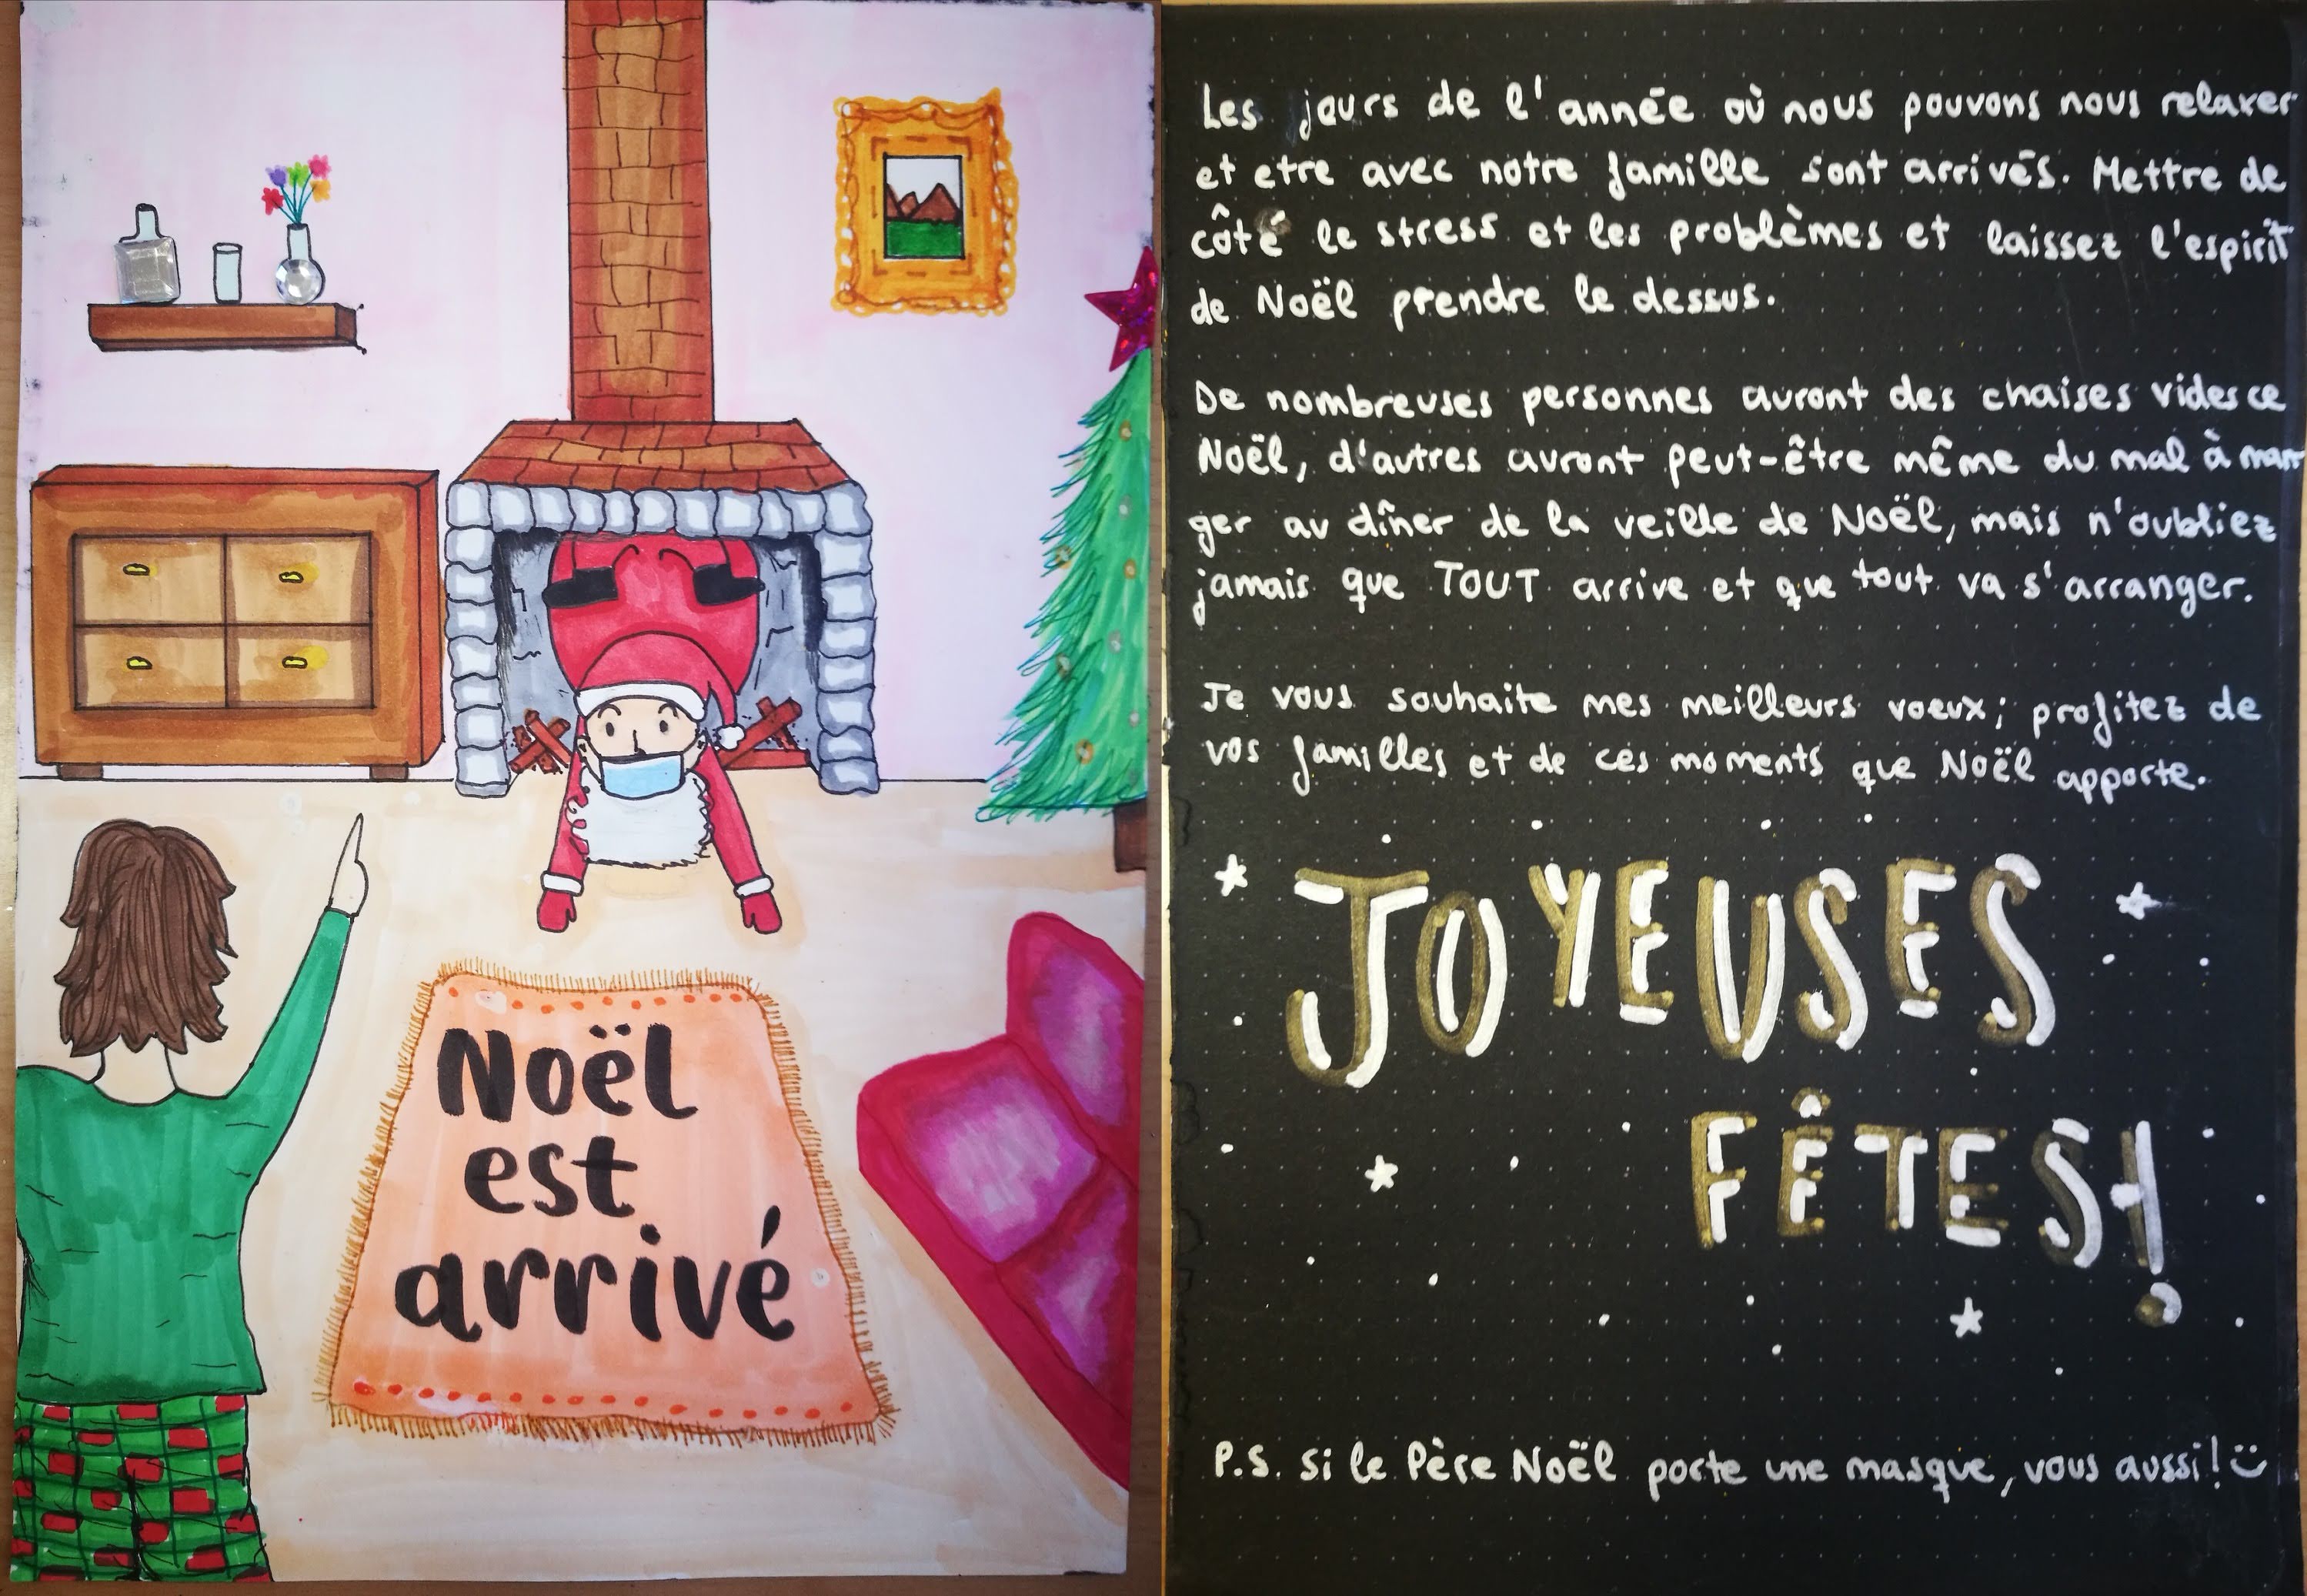 Noël
est
arrivé
Les jours de l'année où nous pouvons nous relaxer
et etre avec notre famille sont arrivés. Mettre de
côté le stress et les problèmes et laissez l'espirit
de Noël prendre le dessus.
De nombreuses personnes auront des chaises vides ce
Noël, d'autres auront peut-être même du mal à man
ger au dîner de la veille de Noël, mais n'oubliez
jamais que TOUT arrive et que tout va s'arranger.
Je vous souhaite mes meilleurs voeux; profitez de
vos familles et de ces moments que Noël apporte.
JOYEUSES
FÊTES!
P.S. si le Père Noël porte une masque, vous aussi! ü